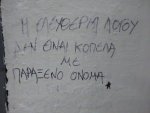 Η ΕΛΕΥΘΕΡΙΑ ΛΟΓΟΥ
ΔΕΝ ΕΙΝΑΙ ΚΟΠΕΛΑ
ΜΕ
ΠΑΡΑΞΕΝΟ ΟΝΟΜΑ